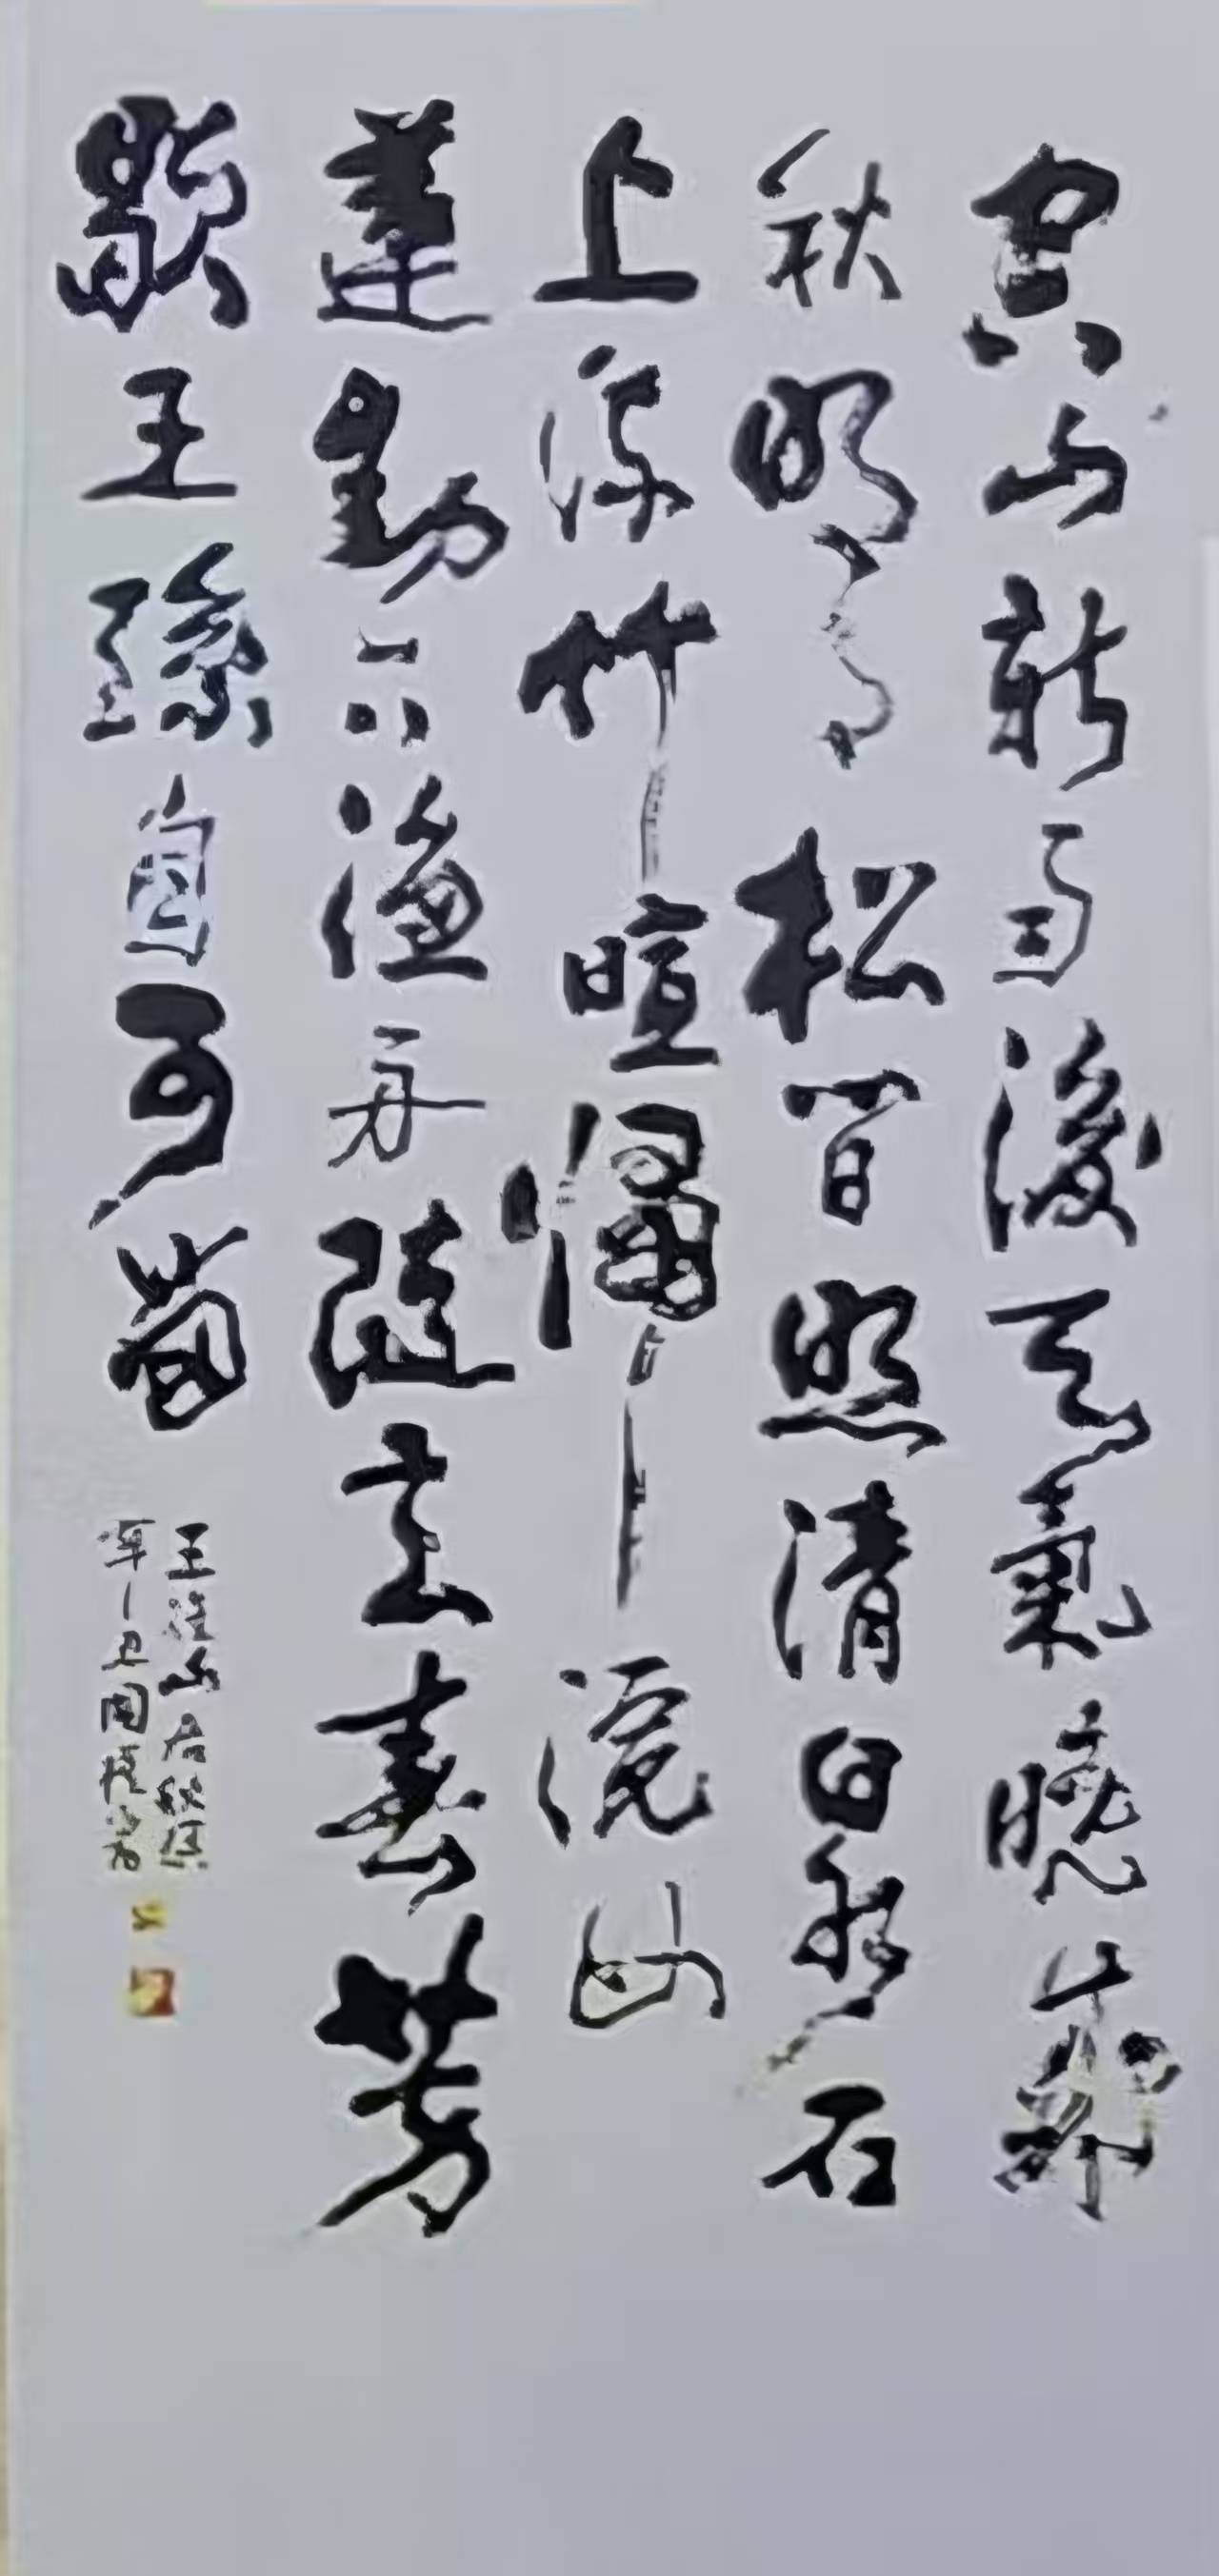 空山新雨後天氣晚來
秋明月松間照清泉石
上流竹喧歸浣女
蓮動下漁舟隨意春芳
歇王孫自可留
王維山居秋暝
辛丑